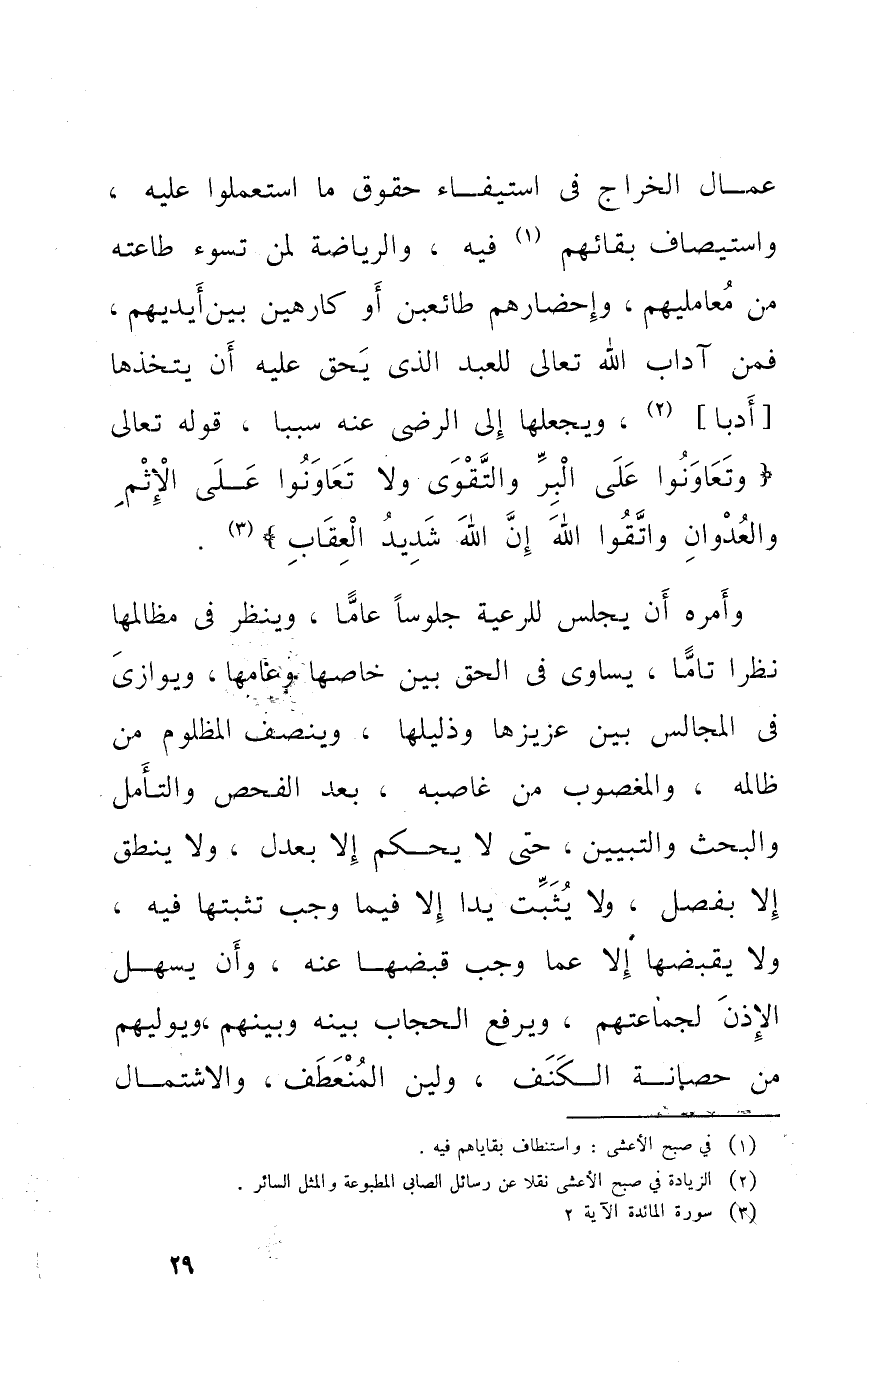 عمـــال الخراج فى استيفـــاء حقوق ما استعملوا عليه ،
واستيصاف بقائهم (١) فيه ، والرياضة لمن تسوء طاعته
من مُعامليهم ، وإحضارهم طائعين أو كارهين بين أيديهم ،
فمن آداب الله تعالى للعبد الذى يَحق عليه أن يتخذها
[أدبا] (٢) ، ويجعلها إلى الرضى عنه سببا ، قوله تعالى
﴿ وتَعَاوَنُوا عَلَى الْبِرِّ والتَّقْوَى ولا تَعَاوَنُوا عَـــلَى الْإِثْمِ
والعُدْوانِ واتَّقُوا اللهَ إِنَّ اللهَ شَدِيدُ الْعِقَابِ ﴾ (٣) .
وأمره أن يجلس للرعية جلوساً عامًّا ، وينظر فى مظالمها
نظرا تامًّا ، يساوى فى الحق بين خاصها وعامها ، ويوازىَ
فى المجالس بين عزيزها وذليلها ، وينصف المظلوم من
ظالمه ، والمغصوب من غاصبه ، بعد الفحص والتأمل
والبحث والتبيين ، حتى لا يحـــكم إلا بعدل ، ولا ينطق
إلا بفصل ، ولا يُثَبِّت يدا إلا فيما وجب تثبتها فيه ،
ولا يقبضها إلا عما وجب قبضهـا عنه ، وأن يسهـــل
الإذنَ لجماعتهم ، ويرفع الحجاب بينه وبينهم ،ويوليهم
من حصانـــة الـــكَنَف ، ولين المُنْعَطَف ، والاشتمـــال
(١) في صبح الأعشى : واستنطاف بقاياهم فيه .
(٢) الزيادة في صبح الأعشى نقلا عن رسائل الصابى المطبوعة والمثل السائر .
(٣) سورة المائدة الآية ٢
٢٩